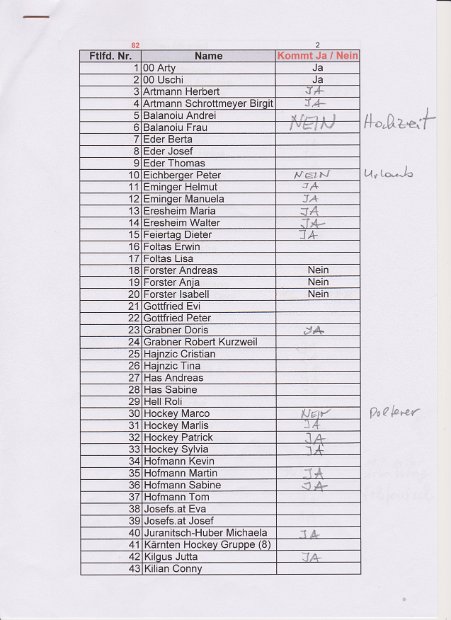 82 2
Ftlfd. Nr. Name Kommt Ja / Nein
1 00 Arty Ja
2 00 Uschi Ja
3 Artmann Herbert JA
4 Artmann Schrottmeyer Birgit JA
5 Balanoiu Andrei
6 Balanoiu Frau NEIN Hochzeit
7 Eder Berta
8 Eder Josef
9 Eder Thomas
10 Eichberger Peter NEIN Urlaub
11 Eminger Helmut JA
12 Eminger Manuela JA
13 Eresheim Maria JA
14 Eresheim Walter JA
15 Feiertag Dieter JA
16 Foltas Erwin
17 Foltas Lisa
18 Forster Andreas Nein
19 Forster Anja Nein
20 Forster Isabell Nein
21 Gottfried Evi
22 Gottfried Peter
23 Grabner Doris JA
24 Grabner Robert Kurzweil
25 Hajnzic Cristian
26 Hajnzic Tina
27 Has Andreas
28 Has Sabine
29 Hell Roli
30 Hockey Marco NEIN Polterer
31 Hockey Marlis JA
32 Hockey Patrick JA
33 Hockey Sylvia JA
34 Hofmann Kevin
35 Hofmann Martin JA
36 Hofmann Sabine JA
37 Hofmann Tom
38 Josefs.at Eva
39 Josefs.at Josef
40 Juranitsch-Huber Michaela JA
41 Kärnten Hockey Gruppe (8)
42 Kilgus Jutta JA
43 Kilian Conny